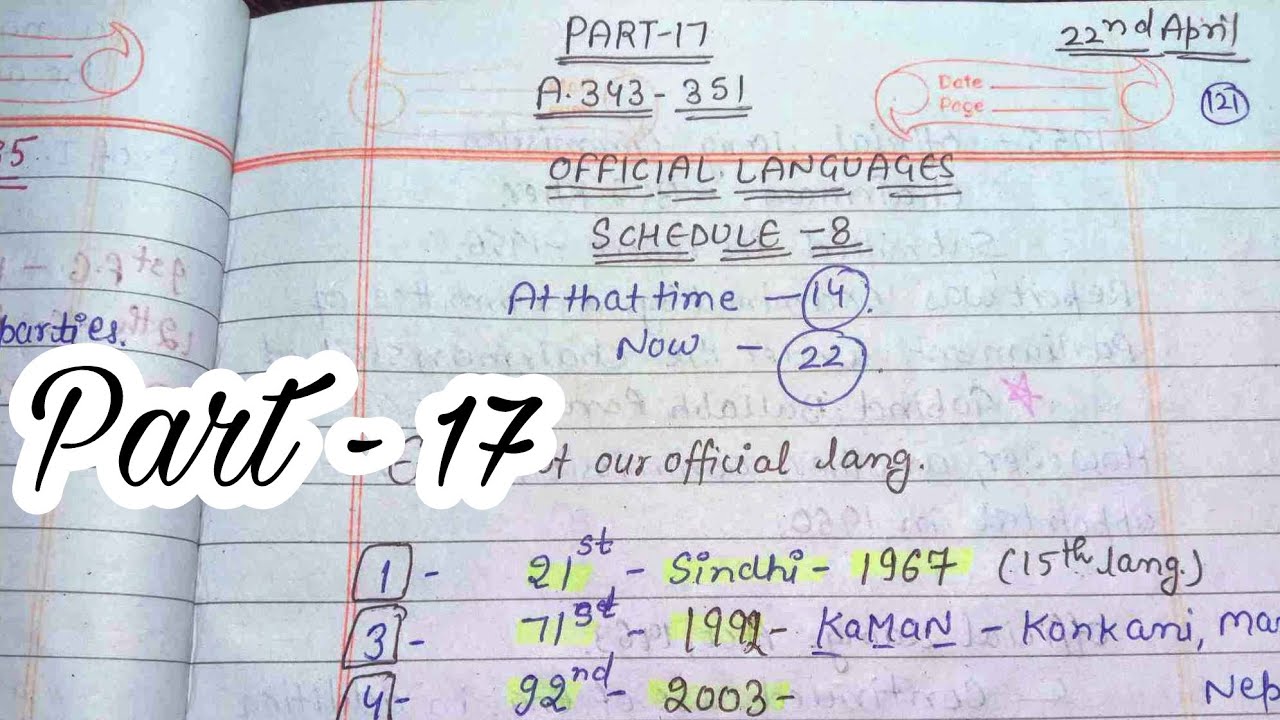 PART-17
22nd April
A. 343 - 351
Date
Page
121
OFFICIAL LANGUAGES
SCHEDULE - 8
At that time - 14.
Now - 22.
parties.
Part - 17
our official lang.
1 - 21st - Sindhi - 1967 (15th lang.)
3 - 71st - 1992 - KaMaN - Konkani, Ma
4 - 92nd - 2003 -
Nep